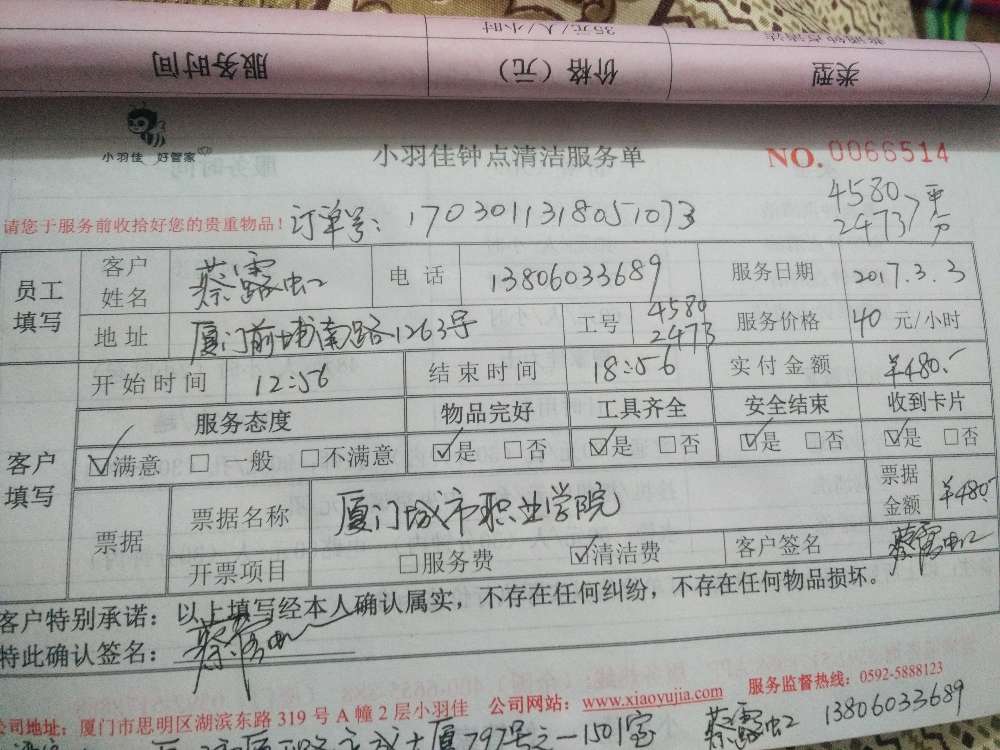 普通钟点清洁 35元/人/小时
类型 价格（元） 服务时间
小羽佳 好管家
小羽佳钟点清洁服务单 NO.0066514
请您于服务前收拾好您的贵重物品！ 订单号：1703011318051073
4580
2473
员工填写 客户姓名 蔡露虹 电话 13806033689 服务日期 2017.3.3
地址 厦门前埔南路1263号 工号 4580 2473 服务价格 40元/小时
客户填写 开始时间 12:56 结束时间 18:56 实付金额 ¥480.-
服务态度 物品完好 工具齐全 安全结束 收到卡片
☑满意 □一般 □不满意 ☑是 □否 ☑是 □否 ☑是 □否 ☑是 □否
票据 票据名称 厦门城市职业学院 票据金额 ¥480.-
开票项目 □服务费 ☑清洁费 客户签名 蔡露虹
客户特别承诺：以上填写经本人确认属实，不存在任何纠纷，不存在任何物品损坏。
特此确认签名：蔡露虹
公司地址：厦门市思明区湖滨东路319号A幢2层小羽佳 公司网站：www.xiaoyujia.com 服务监督热线：0592-5888123
大厦797号之一1501室 蔡露虹 13806033689